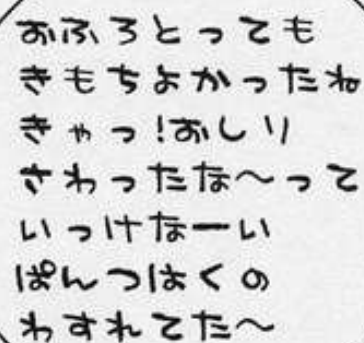 おふろとっても
きもちよかったね
きゃっ!おしり
さわったな〜って
いっけなーい
ぱんつはくの
わすれてた〜